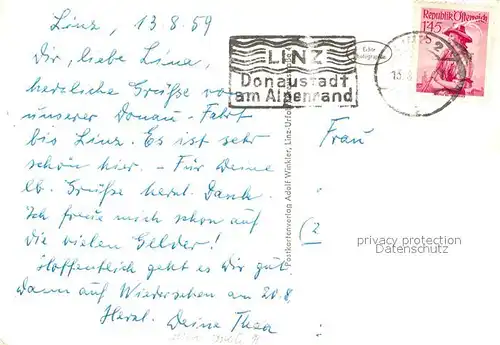 Linz, 13.8.59
Dir, liebe Line,
herzliche Grüße von
unserer Donau-Fahrt
bis Linz. Es ist sehr
schön hier. - Für Deine
lb. Grüße herzl. Dank.
Ich freue mich schon auf
die vielen Gelder!
Hoffentlich geht es Dir gut.
Dann auf Wiedersehen am 20.8.
Herzl. Deine Thea
LINZ
Donaustadt
am Alpenrand
Echte
Photographie
Republik Österreich
1.45
13.8.
Postkartenverlag Adolf Winkler, Linz-Urfahr
Frau
(2
privacy protection
Datenschutz